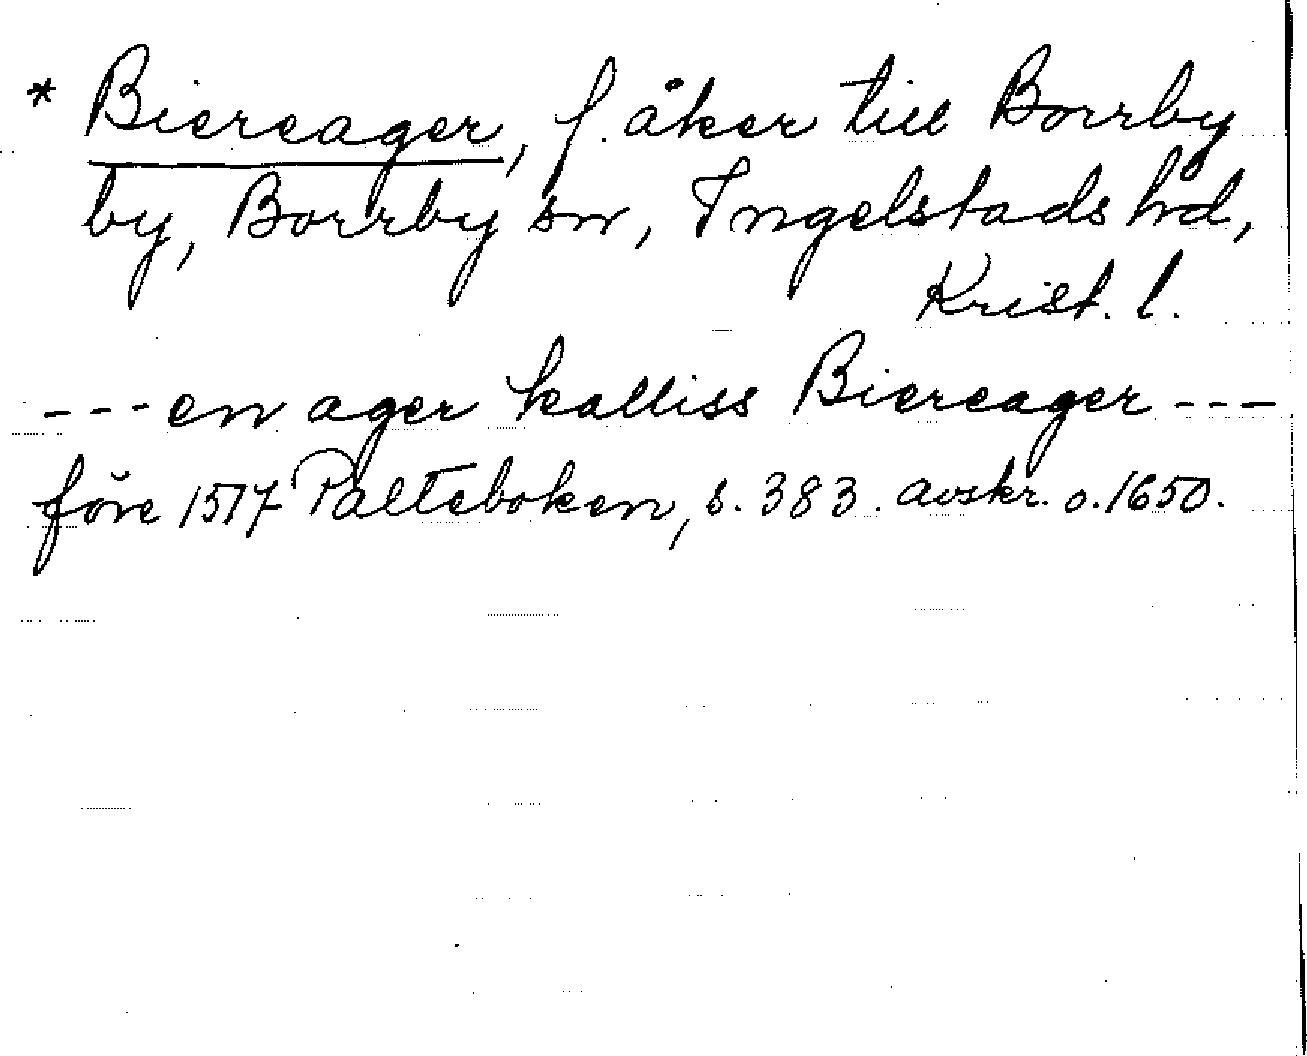 * Biereager, f. åker till Borrby
by, Borrby sn, Ingelstads hd,
Krist. l.
---en ager kalliss Biereager---
före 1517 Palteboken, s. 383. avskr. o. 1650.